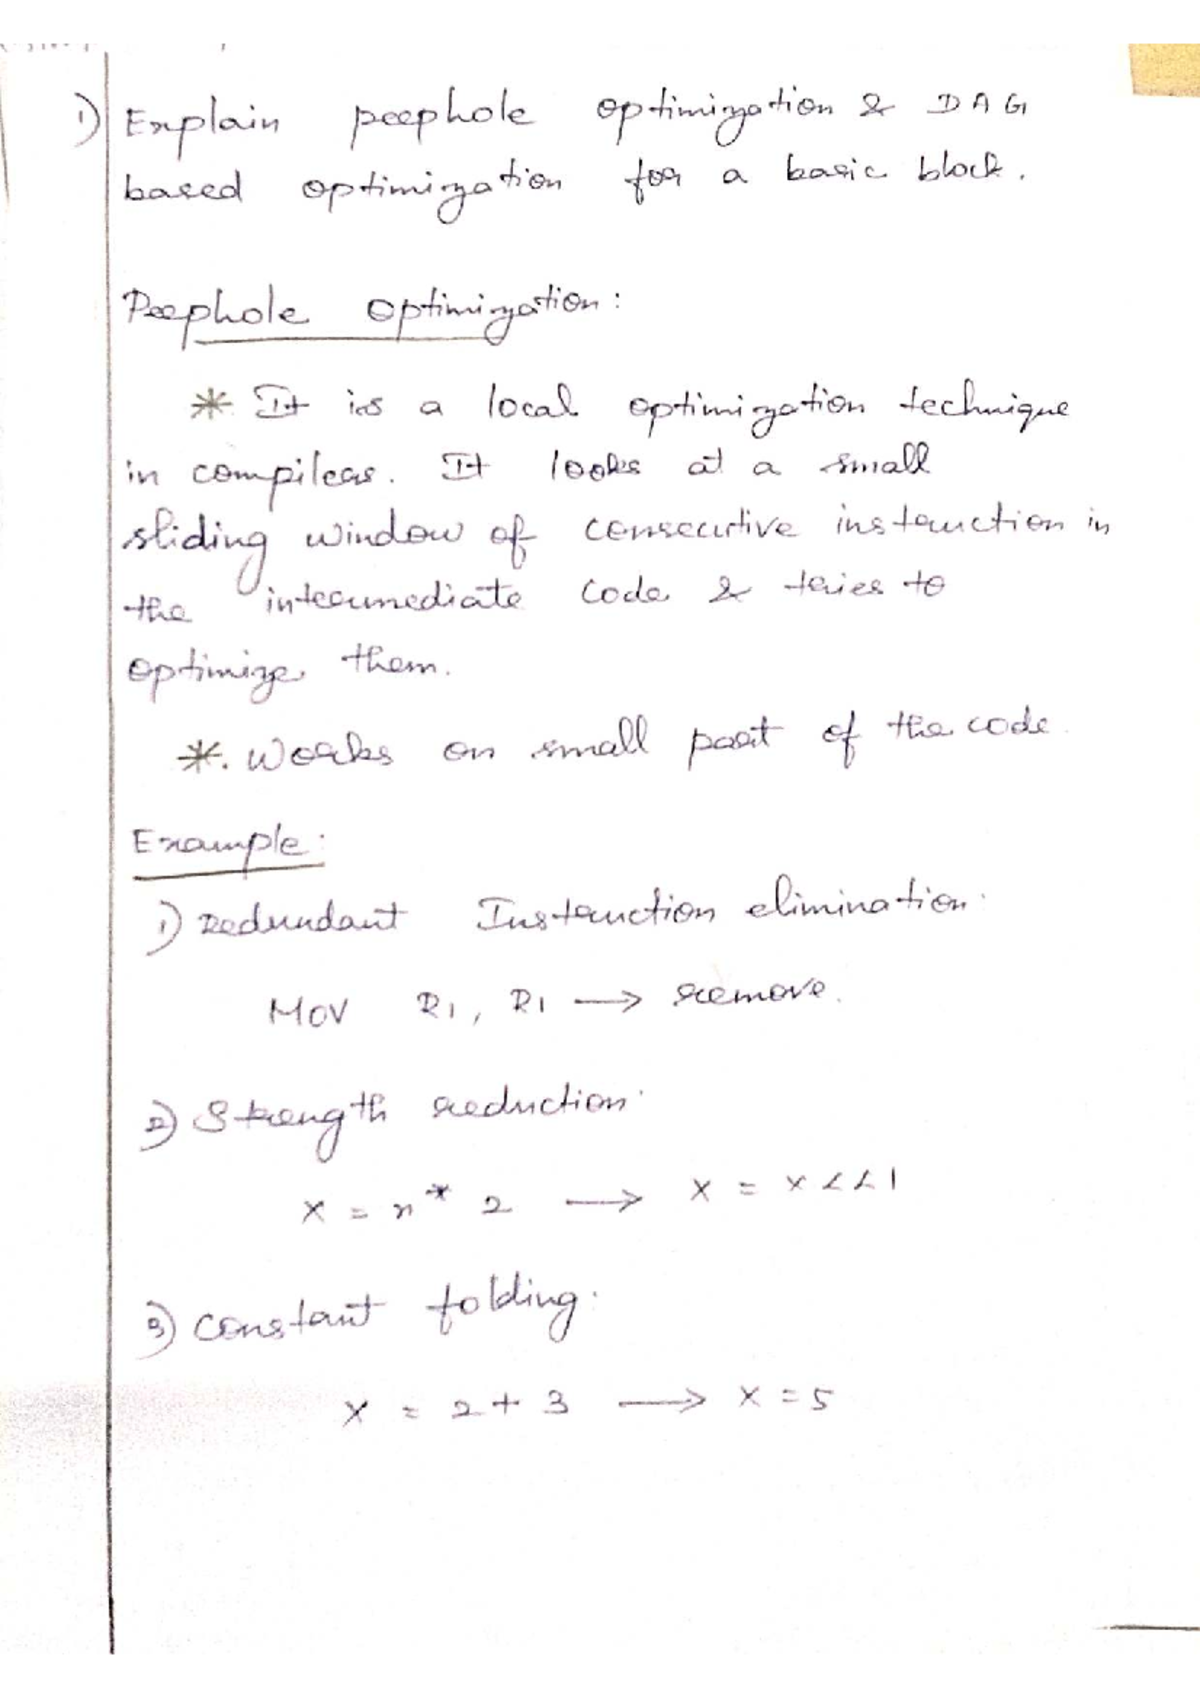 1) Explain peephole optimization & DAG
based optimization for a basic block.
Peephole optimization:
* It is a local optimization technique
in compilers. It looks at a small
sliding window of consecutive instruction in
the intermediate code & tries to
optimize them.
*. Works on small part of the code.
Example:
1) Redundant Instruction elimination:
MOV R1, R1 → remove.
2) Strength reduction:
X = x * 2 → X = x << 1
3) constant folding:
X = 2 + 3 → X = 5